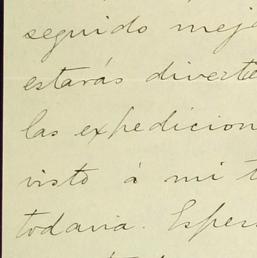 seguido mej
estarás diverte
las expedicion
visto á mi t
todavia. Esper